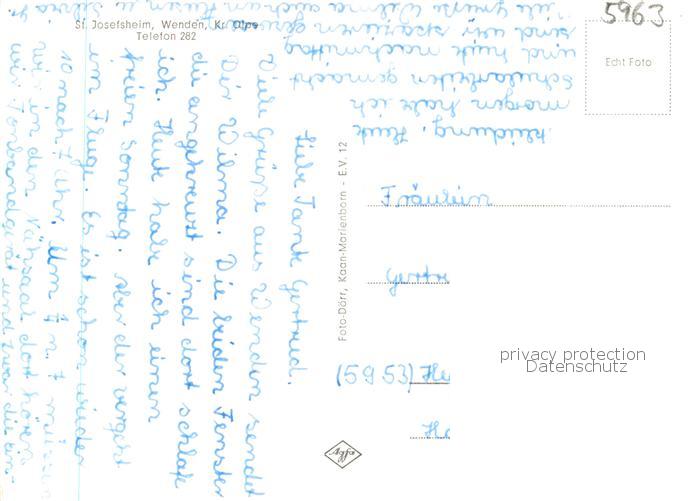 St. Josefsheim, Wenden, Kr. Olpe
Telefon 282
5963
Echt Foto
Foto-Dörr, Kaan-Marienborn - E.V. 12
Fräulein
Gertr
(5953) He
He
privacy protection
Datenschutz
Agfa
Liebe Tante Gertrud.
Viele Grüße aus Wenden sendet
Dir Wilma. Die beiden Fenster
die angekreuzt sind dort schlafe
ich. Heute habe ich einen
freien Sonntag. aber der vergeht
im Fluge. Es ist schon wieder
10 nach 7 Uhr. Um 7 müssen
wir in den Nähsaal dort hören
wir Tonbandgerät und zwar die Ein-
kleidung. Heute
morgen habe ich
Schularbeiten gemacht
und heute nachmittag
sind wir spazieren
viele Grüße Wilma auch an